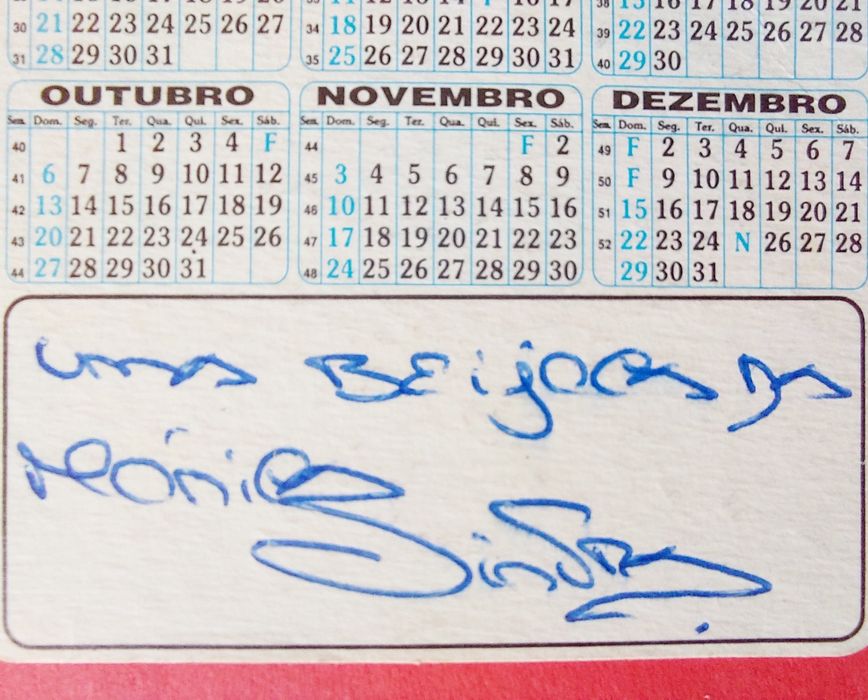 30 21 22 23 24 25 26 27
31 28 29 30 31
33 11 12 13 14 F 16 17
34 18 19 20 21 22 23 24
35 25 26 27 28 29 30 31
38 15 16 17 18 19 20 21
39 22 23 24 25 26 27 28
40 29 30
OUTUBRO
Sem. Dom. Seg. Ter. Qua. Qui. Sex. Sáb.
40 1 2 3 4 F
41 6 7 8 9 10 11 12
42 13 14 15 16 17 18 19
43 20 21 22 23 24 25 26
44 27 28 29 30 31
NOVEMBRO
Sem. Dom. Seg. Ter. Qua. Qui. Sex. Sáb.
44 F 2
45 3 4 5 6 7 8 9
46 10 11 12 13 14 15 16
47 17 18 19 20 21 22 23
48 24 25 26 27 28 29 30
DEZEMBRO
Sem. Dom. Seg. Ter. Qua. Qui. Sex. Sáb.
49 F 2 3 4 5 6 7
50 F 9 10 11 12 13 14
51 15 16 17 18 19 20 21
52 22 23 24 N 26 27 28
29 30 31
uma Beijoca da
Mónica
Sintra